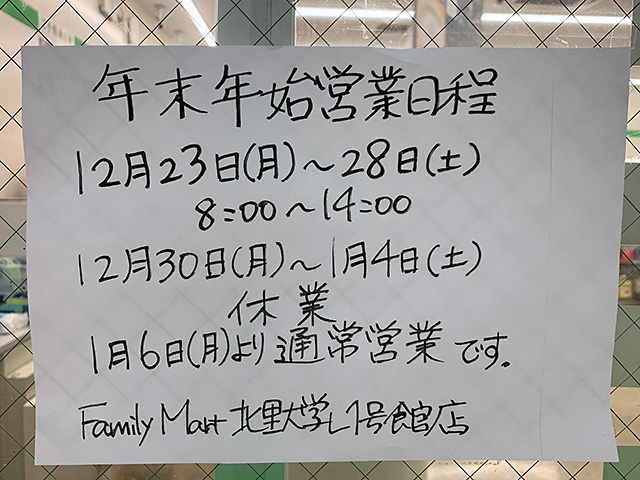 年末年始営業日程
12月23日(月)～28日(土)
8:00～14:00
12月30日(月)～1月4日(土)
休業
1月6日(月)より通常営業です。
Family Mart 北里大学L1号館店